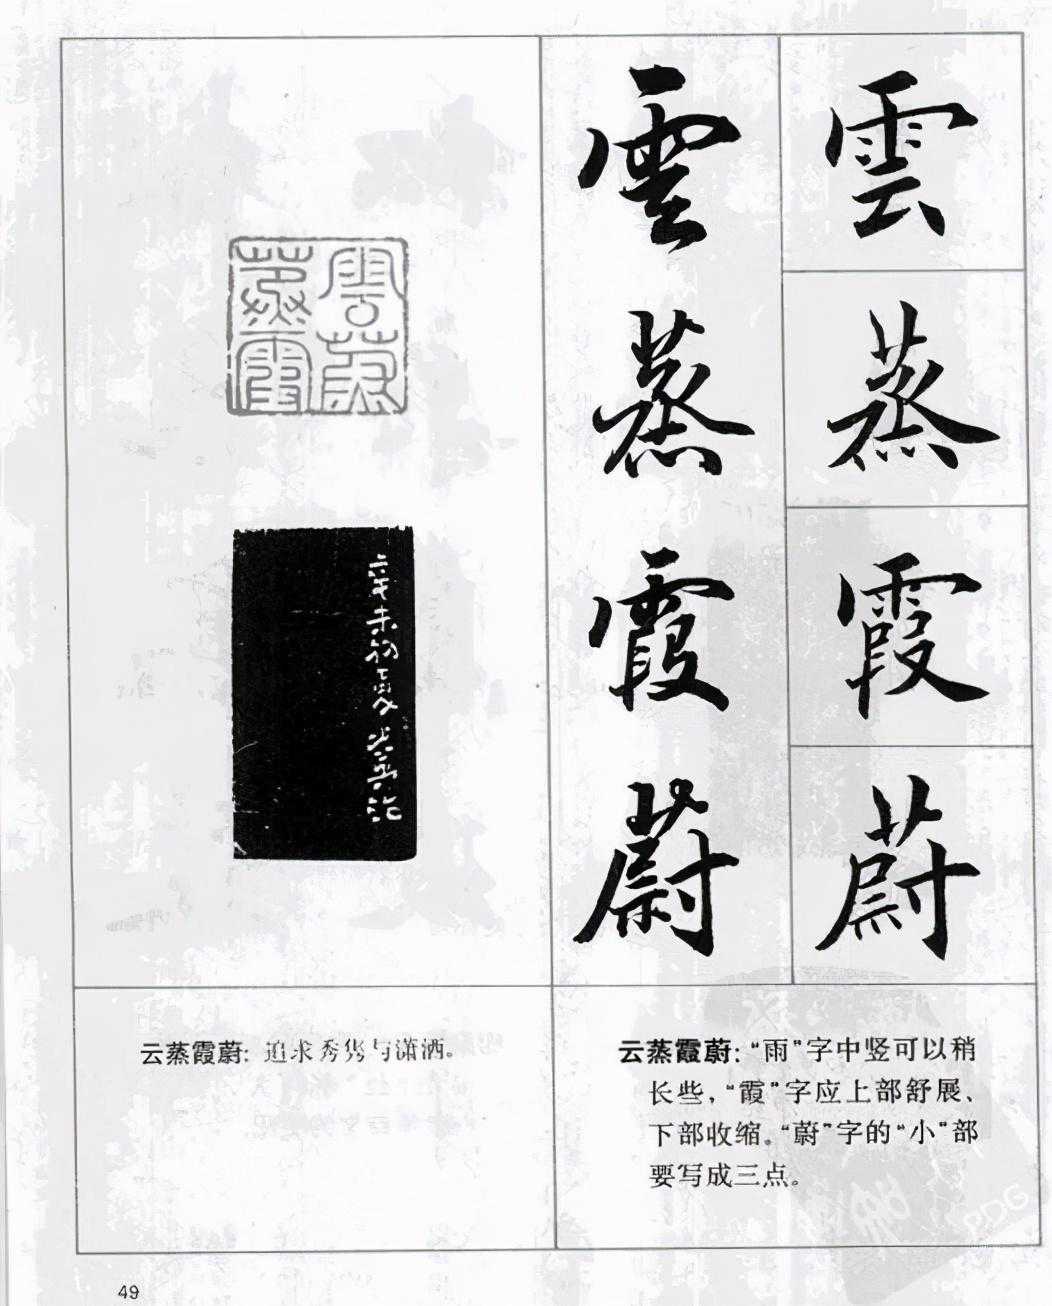 雲蒸霞蔚
雲蒸霞蔚
雲蒸霞蔚
辛未初夏
云蒸霞蔚：追求秀隽与潇洒。
云蒸霞蔚：“雨”字中竖可以稍
长些，“霞”字应上部舒展、
下部收缩。“蔚”字的“小”部
要写成三点。
PDG
49